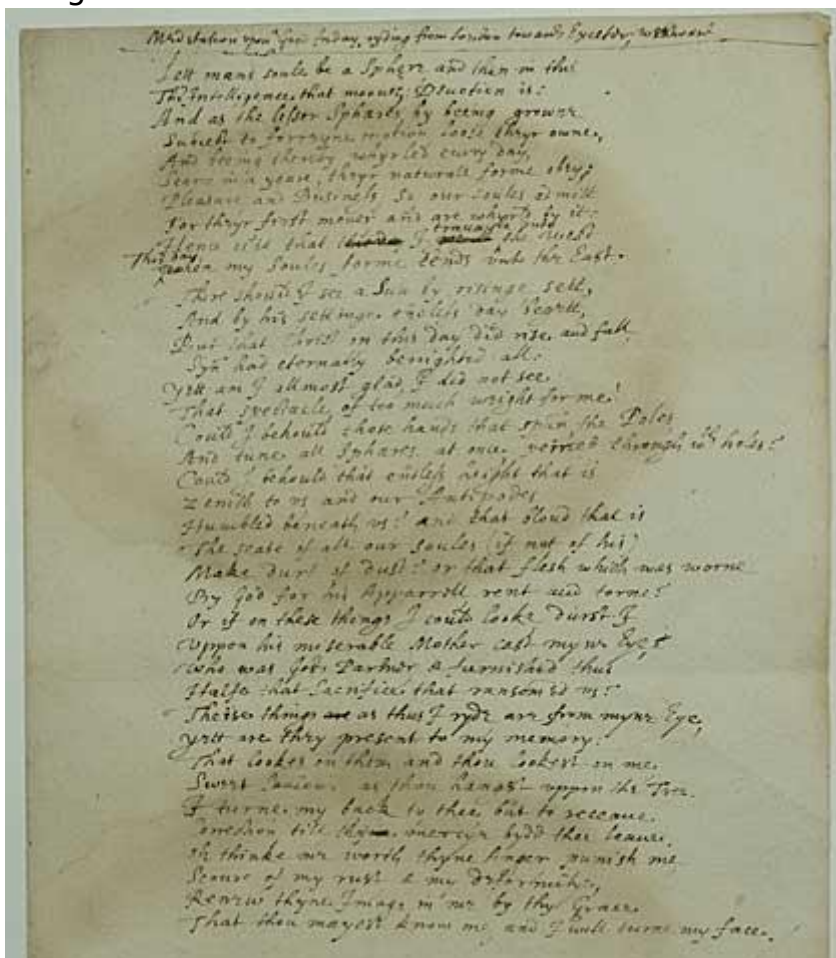 Meditation vpon Good friday, ryding from London towards Exceter, westward
Lett mans soule be a Sphere and then in this
The Intelligence that moues, Deuotion is:
And as the lesser Sphares by beeing growne
Subiect to forrayne motion loose theyr owne,
And beeing thereby whyrled euery day,
Scarce in a yeare, theyr naturall forme obey;
Pleasure and Businesse So our Soules admitt
For theyr first mouer and are whyrld by it:
Hence ist that I trauayle the West
This day when my Soules forme tends the East.
There should I see a Sun by risinge sett,
And by his settinge endless day begett,
But that Christ on this day did rise and fall,
Syn had eternally benighted all:
Yett am I allmost glad, I did not see
That spectacle, of too much weight for me!
Could I behould those hands that span the Poles
And tune all Sphares at once, peirced through wth holes?
Could I behould that endless height that is
Zenith to vs and our Antipodes
Humbled beneath vs? and that bloud that is
The seate of all our soules (if not of his)
Make durt of dust? or that flesh which was worne
By God for his Apparrell rent and torne?
Or if on these things I could looke durst I
Vppon his miserable Mother cast myne Eye,
Who was Gods Partner & furnished thus
Halfe that Sacrifice that ransomed vs?
Theise things as thus I ryde are from myne Eye,
Yett are they present to my memory:
That lookes on them and thou lookest on me.
Sweet Sauiour as thou hangst vppon the Tree.
I turne my back to thee but to receaue
Correction till thy mercyes bydd thee leaue.
Oh thinke me worth thyne Anger punish me
Scoure of my rust & my deformitie,
Renew thyne Image in me by thy Grace
That thou mayest know me, and I will turne my face.